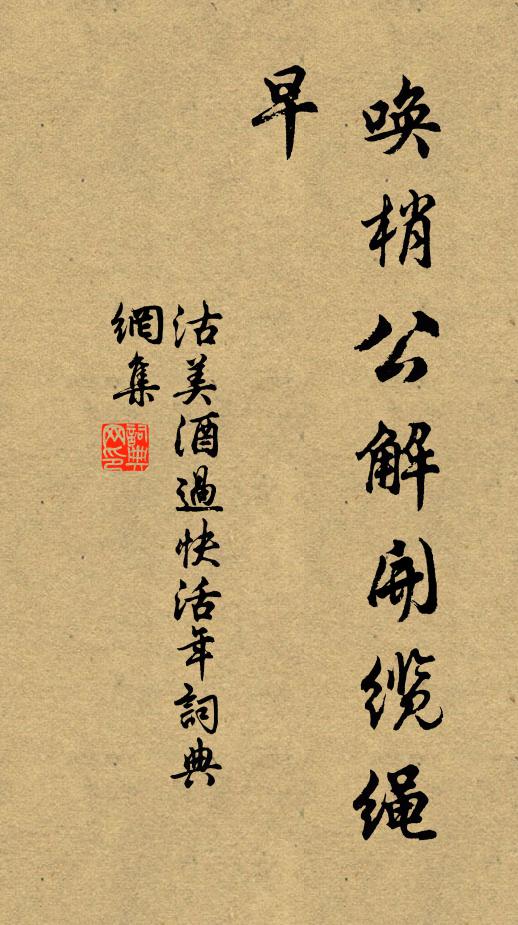 唤梢公解开缆绳
早
沽美酒過快活年詞典
網集
詞典
网印